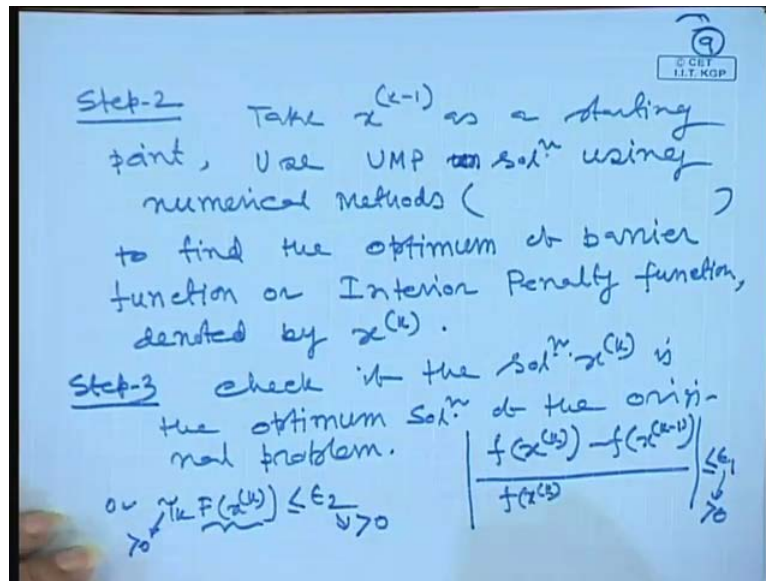 9
© CET
I.I.T. KGP
Step-2 Take x^(k-1) as a starting
point, Use UMP sol^n. using
numerical methods ( )
to find the optimum of barrier
function or Interior Penalty function,
denoted by x^(k).
Step-3 check if the sol^n. x^(k) is
the optimum sol^n. of the origi-
nal problem. | (f(x^(k)) - f(x^(k-1))) / f(x^(k) | ≤ ε_1
or r_k F(x^(k)) ≤ ε_2 >0
>0 >0